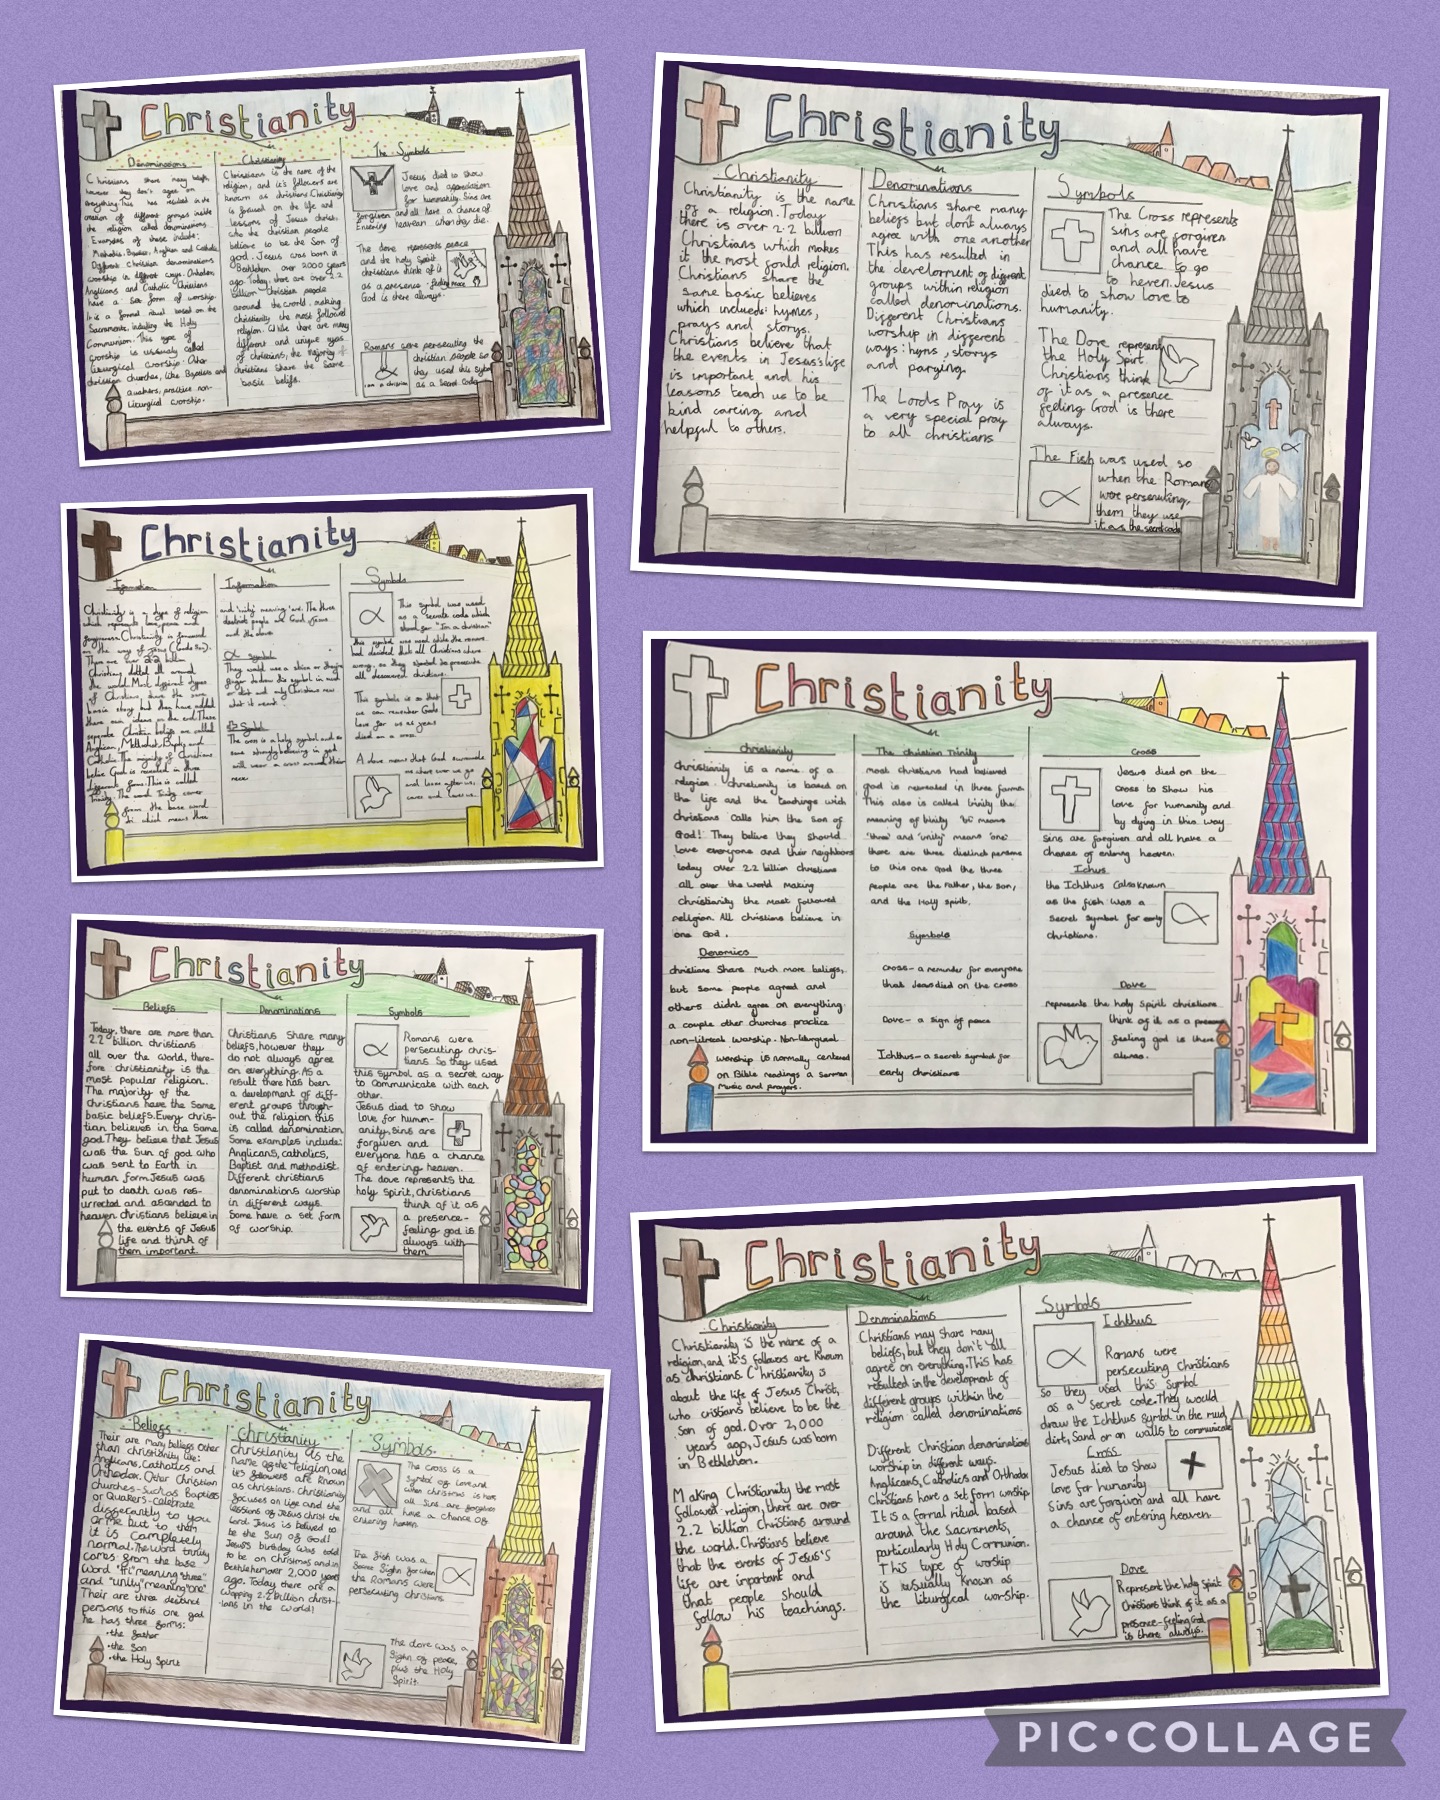 Christianity
Denominations
Christians share many beliefs,
however they don't agree on
everything. This has resulted in the
creation of different groups inside
the religion called denominations.
Examples of these include:
Methodist, Baptist, Anglican and Catholic
Different Christian denominations
worship in different ways. Orthodox,
Anglicans and Catholic Christians
have a set form of worship.
It is a formal ritual based on the
Sacraments, including the Holy
Communion. This type of
worship is ususally called
Liturgical worship. Other
christian churches, like Baptists and
quakers, practise non-
liturgical worship.
Christianity
Christians is the name of the
religion, and it's followers are
known as christians. Christianity
is focused on the life and
lessons of Jesus christ,
who the christian people
believe to be the Son of
god. Jesus was born in
Bethlehem over 2000 years
ago. Today, there are over 2.2
billion christian people
around the world, making
christianity the most followed
religion. While there are many
different and unique types
of christians, the majority of
christians share the same
basic beliefs.
The Symbols
Jesus died to show
love and appreciation
for humanity. Sins are
forgiven and all have a chance of
entering heavean when they die.
The dove represents peace
and the holy spirit
christians think of it
as a presence - feeling
God is there always.
Peace
Romans were persecuting the
christian people so
they used this symbol
as a secret code
I am a christian
Christianity
Christianity is a type of religion
which represents love, peace and
forgiveness. Christianity is focused
on the way of Jesus (Gods Son).
There are over 2.2 billion
Christians dotted all around
the world. Most different types
of Christians, share the same
basic story, but they have added
there own ideas in the end. These
separate Christian beliefs are called
Anglican, Methodist, Baptist and
Catholic. The majority of Christians
belive God is revealed in three
different forms. This is called
Trinity. The word Trinity comes
from the base word
tri which means three
Information
and 'unity' meaning 'one'. The three
distinct people are God, Jesus
and the dove.
Symbol
They would use a stick or their
finger to draw this symbol in mud
or dirt and only Christians new
what it meant.
Symbol
The cross is a holy symbol and so
some strongly believing in god
will wear a cross around their
neck.
Symbols
This symbol was used
as a secrate code which
stood for "Im a christian"
this symbol was used while the romans
had decided that all Christians where
wrong, so they started to prosecute
all descovered christians.
This symbole is so that
we can remember Gods
love for us as jesus
died on a cross.
A dove means that God surrounds
us where ever we go
and looks after us,
cares and loves us.
Christianity
Beliefs
Today, there are more than
2.2 billion christians
all over the world, there-
fore christianity is the
most popular religion.
The majority of the
christians have the same
basic beliefs. Every chris-
tian believes in the same
god. They believe that Jesus
was the Sun of god who
was sent to Earth in
human form. Jesus was
put to death was res-
urrected and ascended to
heaven. Christians believe in
the events of Jesus
life and think of
them important.
Denominations
Christians share many
beliefs, however they
do not always agree
on everything. As a
result there has been
a development of diff-
erent groups through-
out the religion this
is called denomination.
Some examples include:
Anglicans, catholics,
Baptist and methodist.
Different christians
denominations worship
in different ways.
Some have a set form
of worship.
Symbols
Romans were
persecuting chris-
tians. So they used
this symbol as a secret way
to communicate with each
other.
Jesus died to show
love for humm-
anity. Sins are
forgiven and
everyone has a chance
of entering heaven.
The dove represents the
holy spirit, christians
think of it as
a presence-
feeling god is
always with
them.
Christianity
Beliefs
Their are many beliefs other
than christianity like:
Anglicans, Catholics and
Orthodox. Other Christian
churches - Such as Baptists
or Quakers - celebrate
differently to you
or me but to them
it is completely
normal. The word trinity
comes from the base
word "tri" meaning "three"
and "unity" meaning "one"
Their are three distinct
persons to this one god
he has three forms:
•the father
•the Son
•the Holy Spirit
Christianity
christianity is the
name of the religion and
it's followers are known
as christians. Christianity
focuses on life and the
lessons of Jesus christ the
lord Jesus is believed to
be the Sun of God!
Jesus's birthday was told
to be on Christmas and in
Bethlehem over 2,000 years
ago. Today there are a
whopping 2.2 billion christ-
ians in the world!
Symbols
The cross is a
symbol of love and
when christmas is here
all Sins are forgiven
and all have a chance of
entering heaven.
The fish was a
Secret Sighn for when
the Romans were
persecuting christians
The dove was a
Sighn of peace,
plus the Holy
Spirit.
Christianity
Christianity
Christianity is the name
of a religion. Today
there is over 2.2 billion
Christians which makes
it the most fould religion.
Christians share the
same basic believes
which inclueds: hymes,
prays and storys.
Christians believe that
the events in Jesus's life
is important and his
leasons teach us to be
kind careing and
helpful to others.
Denominations
Christians share many
beliefs but don't always
agree with one another
This has resulted in
the develorment of different
groups within religion
called denominations.
Different Christians
worship in different
ways: hyms, storys
and parying.
The Lords Pray is
a very special pray
to all christians
Symbols
The Cross represents
sins are forgiven
and all have
chance to go
to heven. Jesus
died to show love to
humanity.
The Dove represent
the Holy Spirt
Christians think
of it as a presence
feeling God is there
always.
The Fish was used so
when the Romans
were persecuting,
them they use
it as the secret code
Christianity
Christianity
Christianity is a name of a
religion. christianity is based on
the life and the teachings wich
christians calls him the son of
God! They belive they should
love everyone and their neighbors
today over 2.2 billion christians
all over the world making
christianity the most followed
religion. All christians believe in
one God.
Denomics
christians share much more beliefs,
but some people agreed and
others didnt agree on everything.
a couple other churches practice
non-litreak worship. Non-liturgical
worship is normally centered
on Bible readings a sermon
music and prayers.
The christian Trinity
most christians had believed
god is repreated in three forms
This also is called trinity the
meaning of trinity 'tri' means
'three' and 'unity' means 'one'
there are three distinct persons
to this one God the three
people are the father, the son,
and the Holy spirit.
Symbols
Cross - a reminder for everyone
that Jesus died on the cross
Dove - a sign of peace
Ichthus - a secret symbol for
early christians
Cross
Jesus died on the
cross to show his
love for humanity and
by dying in this way
sins are forgiven and all have a
chance of entering heaven.
Ichus
the Ichthus (also known
as the fish was a
secret symbol for early
christians.
Dove
represents the holy spirit christians
think of it as a presence
feeling god is there
always.
Christianity
Christianity
Christianity is the name of a
religion, and it's followers are known
as christians. Christianity is
about the life of Jesus Christ,
who cristians believe to be the
son of god. Over 2,000
years ago, Jesus was born
in Bethlehem.
Making Christianity the most
followed religion, there are over
2.2 billion Christians around
the world. Christians believe
that the events of Jesus's
life are inportant and
that people should
follow his teachings.
Denominations
Christians may share many
beliefs, but they don't all
agree on everything. This has
resulted in the development of
different groups within the
religion called denominations
Different Christian denominations
worship in different ways.
Anglicans, Catholics and Orthodox
Christians have a set form worship.
It is a formal ritual based
around the Sacraments,
particularly Holy Communion.
This type of worship
is usually known as
the liturgical worship.
Symbols
Ichthus
Romans were
persecuting Christians
so they used this symbol
as a secret code. They would
draw the Ichthus symbol in the mud,
dirt, Sand or on walls to communicate
Cross
Jesus died to show
love for humanity
sins are forgiven and all have
a chance of entering heaven.
Dove
Represent the holy Spirit
Christians think of it as a
presence-feeling God
is there always.
PIC•COLLAGE